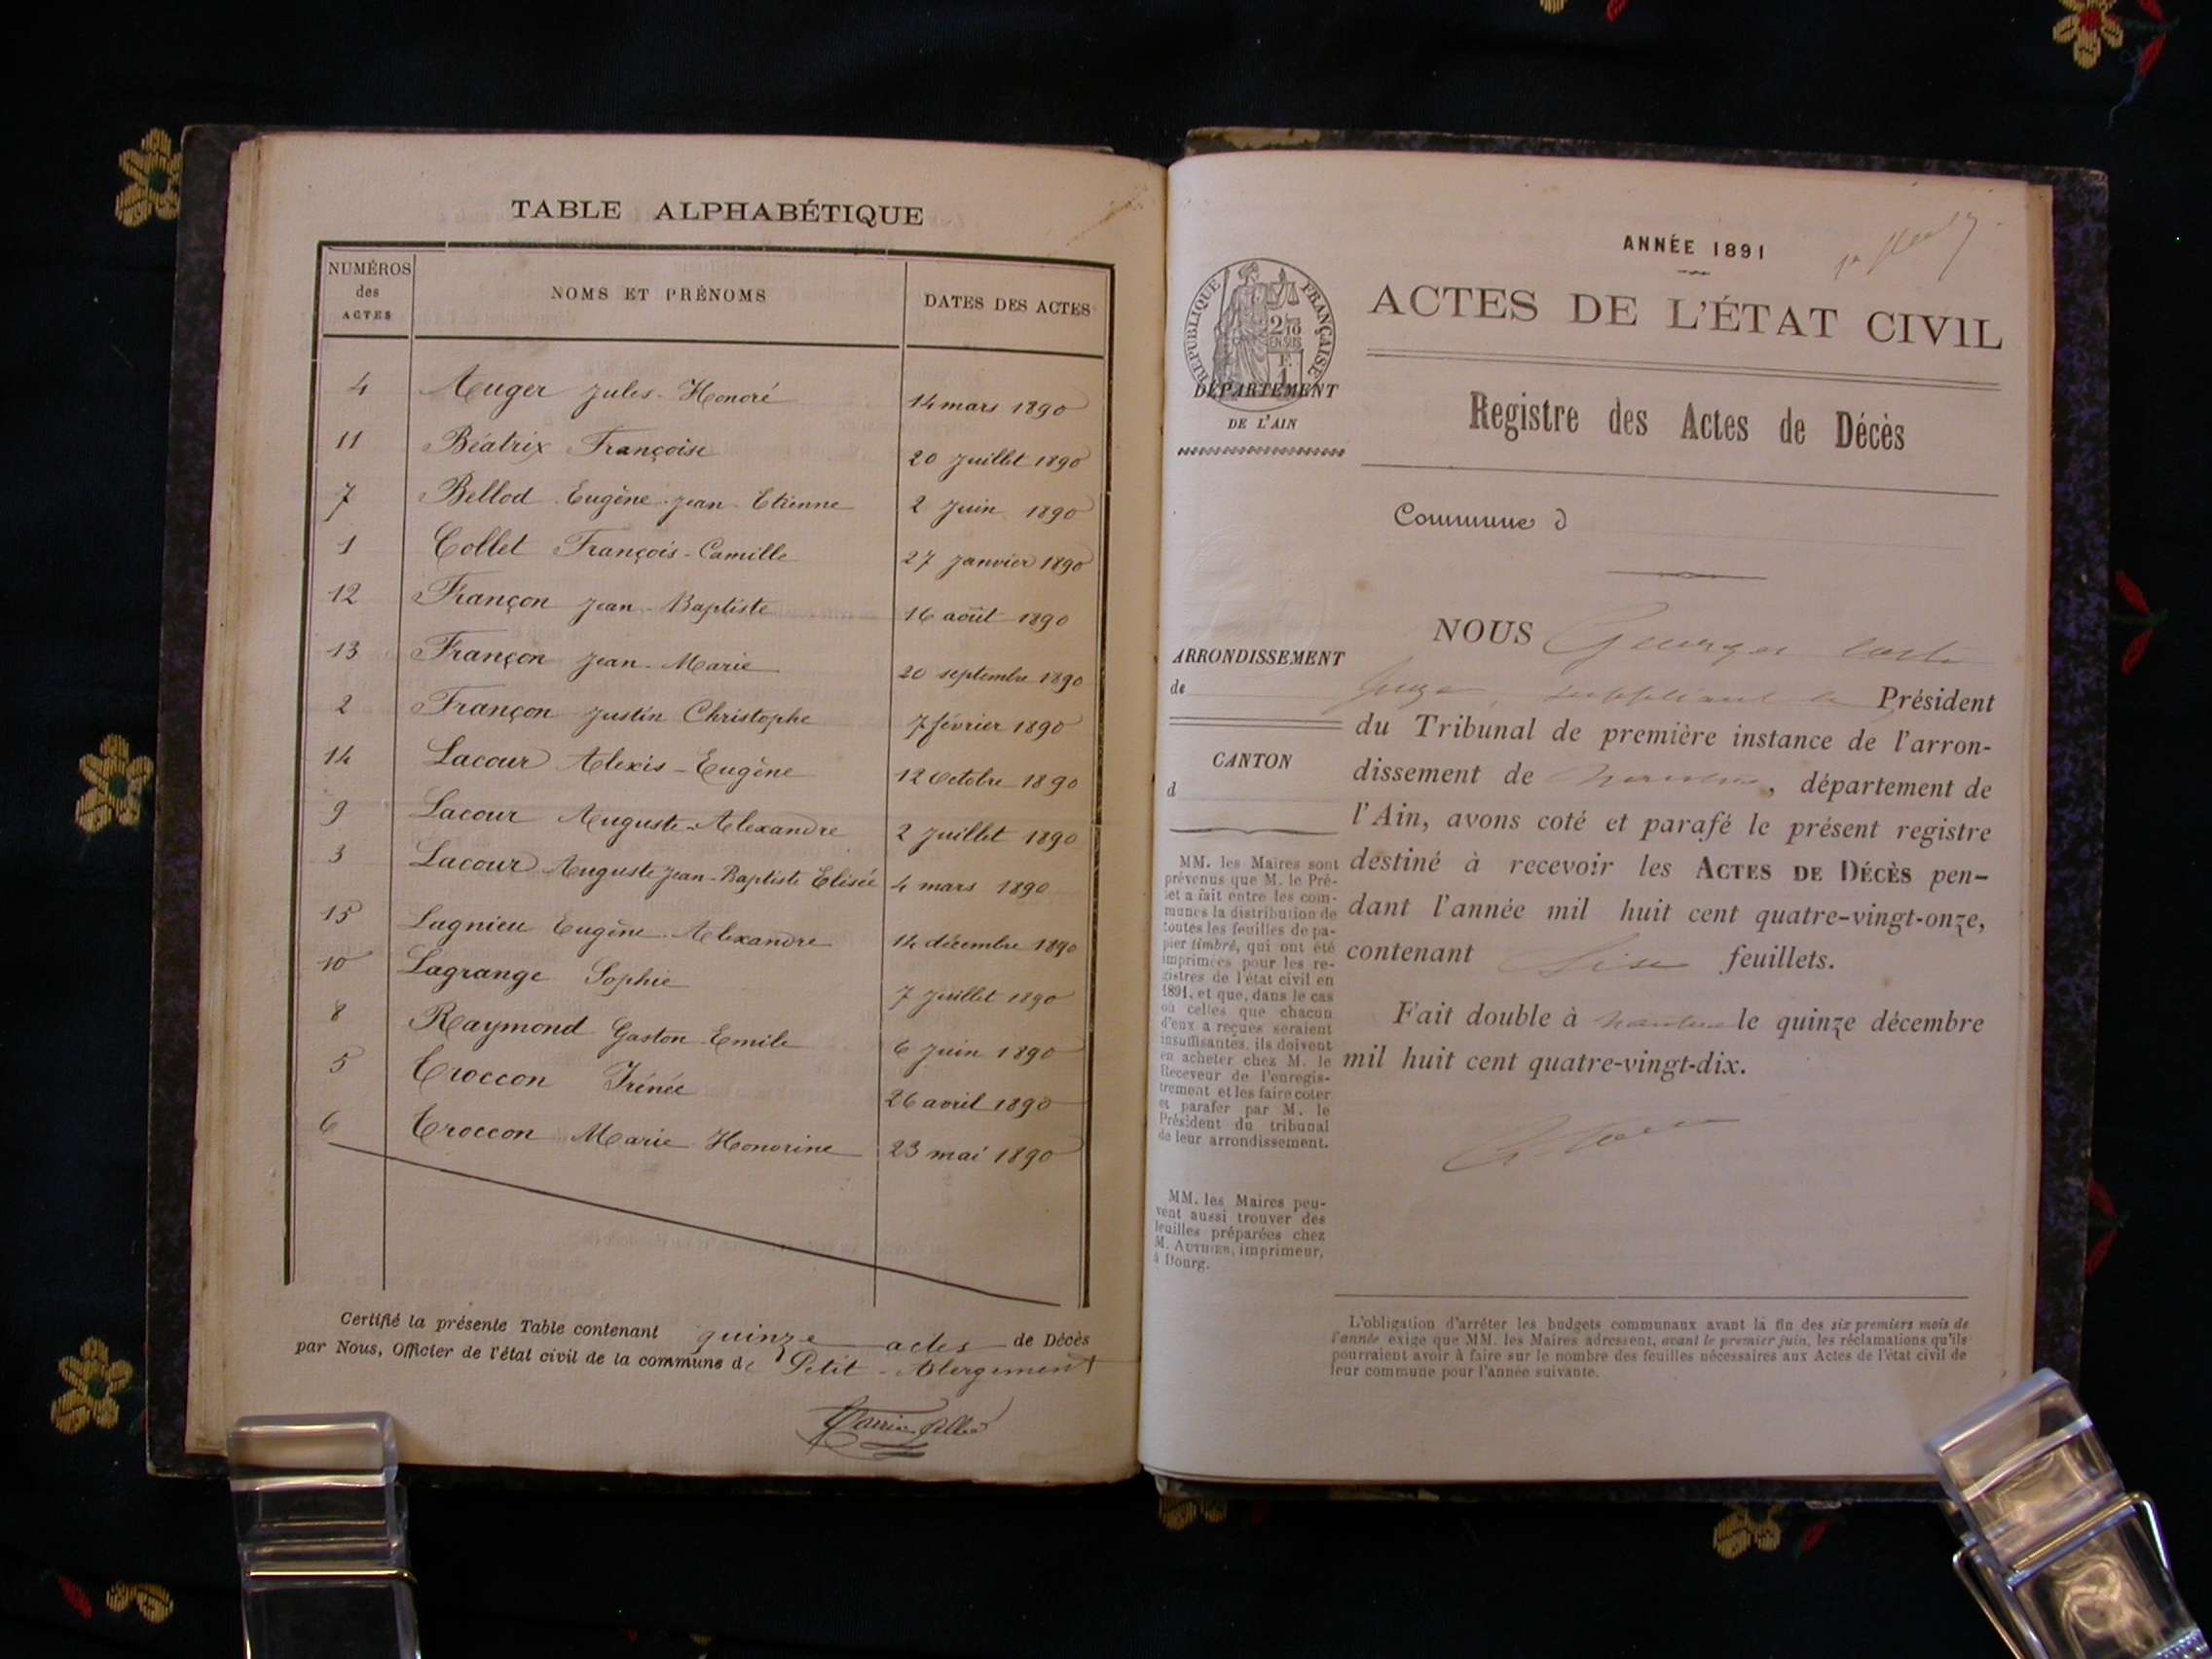 TABLE ALPHABÉTIQUE
NUMÉROS
des
ACTES
NOMS ET PRÉNOMS
DATES DES ACTES
4 Auger Jules-Honoré 14 mars 1890
11 Béatrix Françoise 20 Juillet 1890
7 Bellod Eugène-Jean-Etienne 2 Juin 1890
1 Collet François-Camille 27 Janvier 1890
12 Françon Jean-Baptiste 16 août 1890
13 Françon Jean-Marie 20 septembre 1890
2 Françon Justin Christophe 7 février 1890
14 Lacour Alexis-Eugène 12 Octobre 1890
9 Lacour Auguste-Alexandre 2 Juillet 1890
3 Lacour Auguste Jean-Baptiste Elisée 4 mars 1890
15 Lagnieu Eugène-Alexandre 14 décembre 1890
10 Lagrange Sophie 7 Juillet 1890
8 Raymond Gaston-Emile 6 Juin 1890
5 Troccon Irénée 26 avril 1890
6 Troccon Marie-Honorine 23 mai 1890
Certifié la présente Table contenant quinze actes de Décès
par Nous, Officier de l'état civil de la commune de Petit-Abergement
ANNÉE 1891
ACTES DE L'ÉTAT CIVIL
RÉPUBLIQUE FRANÇAISE
2/10
EN SUS
DÉPARTEMENT
DE L'AIN
Registre des Actes de Décès
Commune d
NOUS Georges
ARRONDISSEMENT
de
Juge, suppléant le Président
du Tribunal de première instance de l'arron-
dissement de Nantua, département de
l'Ain, avons coté et parafé le présent registre
destiné à recevoir les ACTES DE DÉCÈS pen-
dant l'année mil huit cent quatre-vingt-onze,
contenant feuillets.
Fait double à Nantua le quinze décembre
mil huit cent quatre-vingt-dix.
CANTON
d
MM. les Maires sont
prévenus que M. le Pré-
fet a fait entre les com-
munes la distribution de
toutes les feuilles de pa-
pier timbré, qui ont été
imprimées pour les re-
gistres de l'état civil en
1891, et que, dans le cas
où celles que chacun
d'eux a reçues seraient
insuffisantes, ils doivent
en acheter chez M. le
Receveur de l'enregis-
trement et les faire coter
et parafer par M. le
Président du tribunal
de leur arrondissement.
MM. les Maires peu-
vent aussi trouver des
feuilles préparées chez
M. AUTHIER, imprimeur,
à Bourg.
L'obligation d'arrêter les budgets communaux avant la fin des six premiers mois de
l'année exige que MM. les Maires adressent, avant le premier juin, les réclamations qu'ils
pourraient avoir à faire sur le nombre des feuilles nécessaires aux Actes de l'état civil de
leur commune pour l'année suivante.